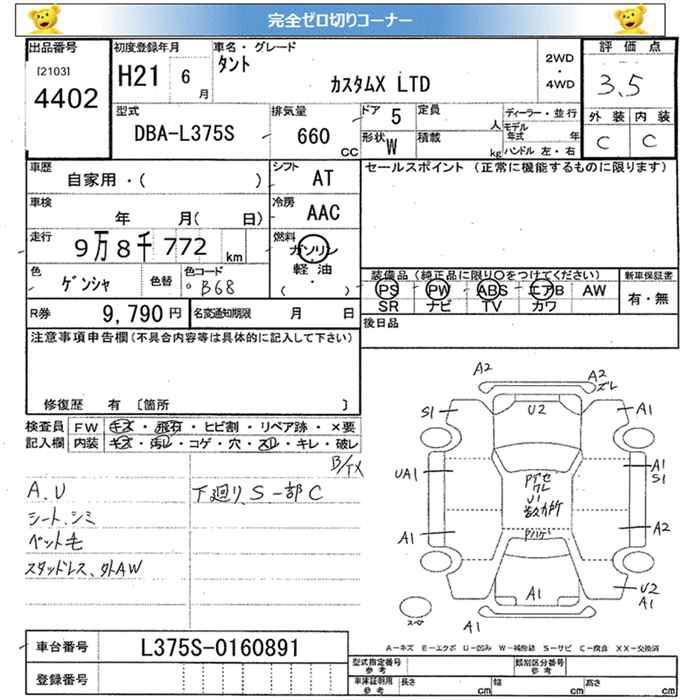 完全ゼロ切りコーナー
出品番号
[2103]
4402
初度登録年月
H21 6月
車名・グレード
タント
カスタムX LTD
2WD
・
4WD
評価点
3.5
外装 内装
C C
型式
DBA-L375S
排気量
660 cc
ドア 5
定員 人
形状 W
積載 kg
ディーラー・並行
モデル年式 年
ハンドル 左・右
車歴
自家用・( )
シフト
AT
車検
年 月( 日)
冷房
AAC
走行
9万8千772 km
燃料
ガソリン
軽油
( )
色
ゲンシャ
色替
色コード
B68
R券 9,790円
名変通知期限 月 日
セールスポイント (正常に機能するものに限ります)
装備品(純正品に限り○をつけてください)
PS PW ABS エアB AW
SR ナビ TV カワ
新車保証書
有・無
後日品
注意事項申告欄(不具合内容等は具体的に記入して下さい)
修復歴 有 〔箇所 〕
検査員記入欄
FW キズ・飛石・ヒビ割・リペア跡・×要
内装 キズ・汚レ・コゲ・穴・スレ・キレ・破レ
B/TX
A.U
シート.シミ
ペット毛
スタッドレス、外AW
下廻りS一部C
A2
A2
ズレ
S1
U2
A1
UA1
A1
S1
U1
A1
A2
A1
U2
A1
A1
スペ
A-キズ E-エクボ U-凹み W-補修跡 S-サビ C-腐食 XX-交換済
車台番号 L375S-0160891
登録番号
型式指定番号
参考
類別区分番号
参考
車庫証明用
参考
長さ cm
幅 cm
高さ cm